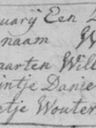 uarij Een
naam W
aarten Will
ntje Danie
etje Wouter